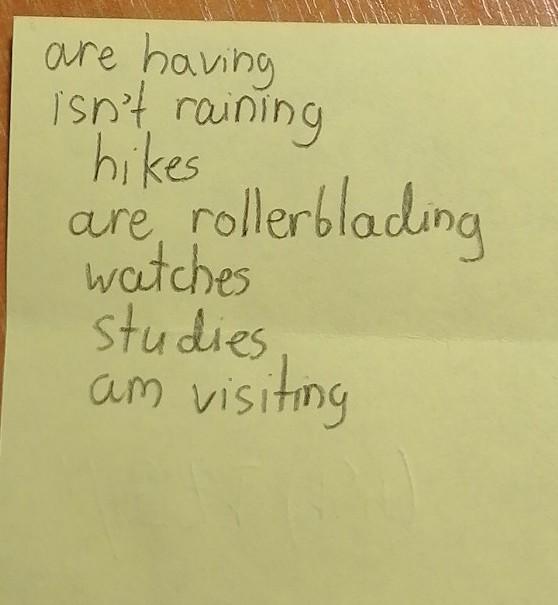 are having
isn't raining
hikes
are rollerblading
watches
studies
am visiting